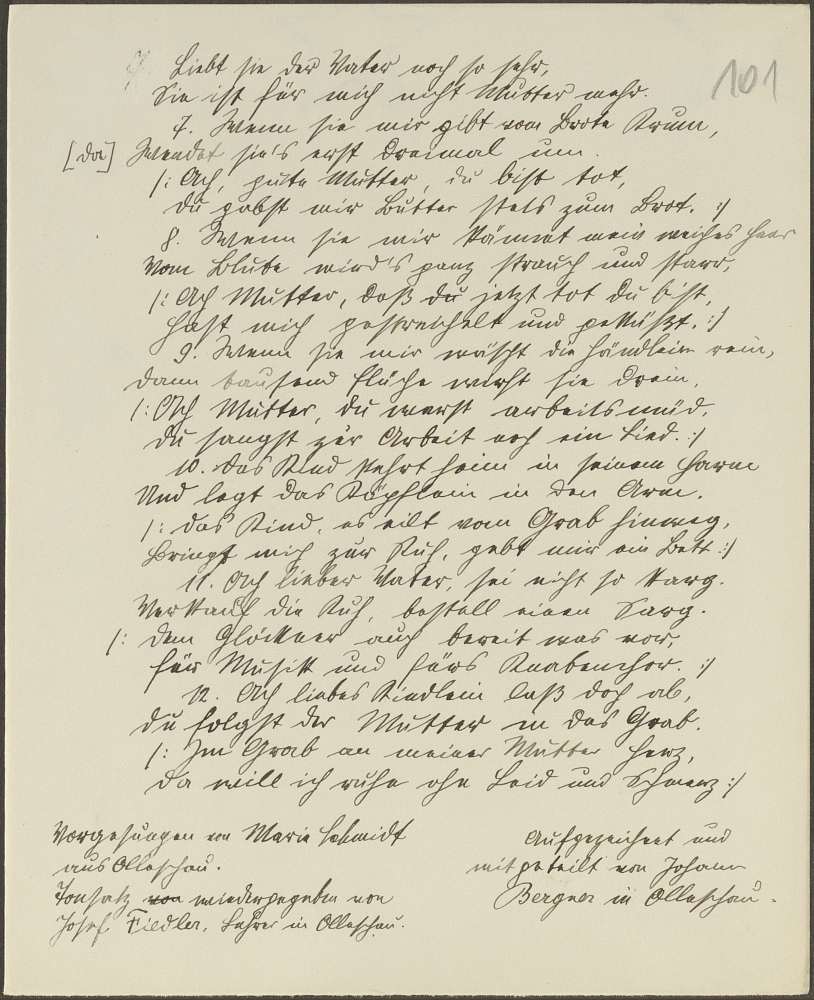 101
Liebt sie der Vater noch so sehr,
Sie ist für mich nicht Mutter mehr.
7. Wenn sie mir gibt vom Brote Krum,
[da] Wendet sie's erst dreimal um.
/: Ach, gute Mutter, du bist tot,
du gabst mir Butter stets zum Brot. :/
8. Wenn sie mir kämmt mein weiches Haar
Vom Blute wird's ganz strauch und starr,
/: Ach Mutter, daß du jetzt tot du bist,
Hast mich gestreichelt und geküßt. :/
9. Wenn sie mir wäscht die Händlein rein,
dann tausend Flüche wirft sie drein,
/: Ach Mutter, du warst arbeitsmüd,
du sangst zur Arbeit noch ein Lied. :/
10. das Kind kehrt heim in seinem Harm
Und legt das Köpflein in den Arm.
/: das Kind, es eilt vom Grab hinweg,
Bringt mich zur Ruh, gebt mir ein Bett :/
11. Ach lieber Vater, sei nicht so karg.
Verkauf die Kuh, bestell einen Sarg.
/: dem Glöckner auch bereit was vor,
für Musik und fürs Knabenchor. :/
12. Ach liebes Kindlein laß doch ab,
du folgst der Mutter in das Grab.
/: Im Grab an meiner Mutter Herz,
da will ich ruhe ohn Leid und Schmerz :/
Vorgesungen von Marie Schmidt
aus Olleschau.
Tonsatz von wiedergegeben von
Josef Fiedler, Lehrer in Olleschau.
Aufgezeichnet und
mitgeteilt von Johann
Bergner in Olleschau.